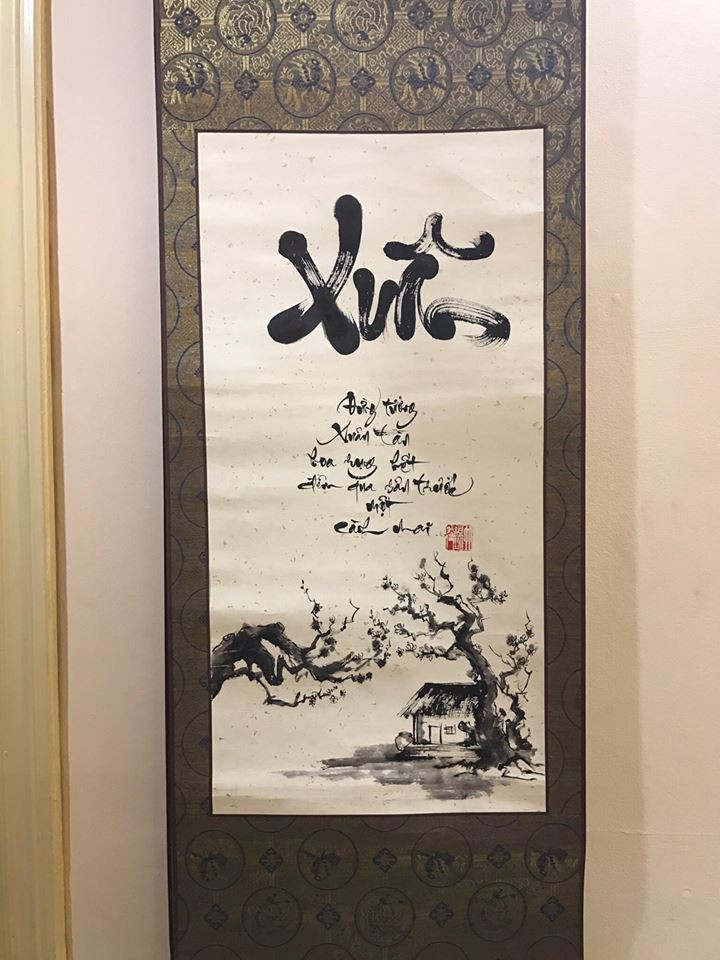 Xuân
Đừng tưởng
Xuân tàn
hoa rụng hết
đêm qua sân trước
một
cành mai